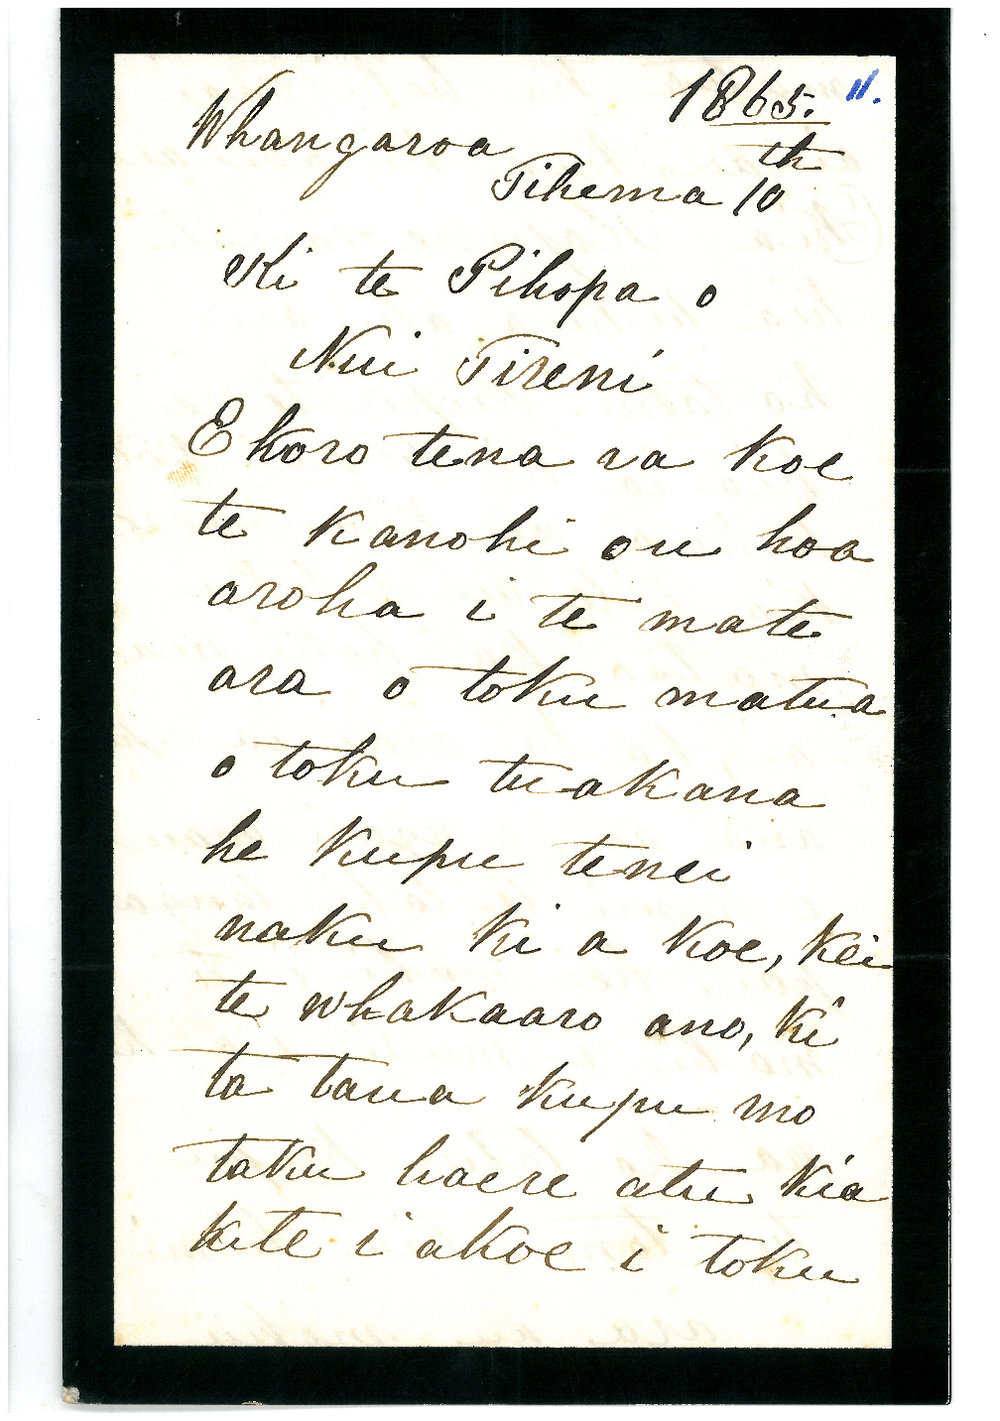 1865. 11.
Whangaroa
Tihema 10th
Ki te Pihopa o
Nui Tireni
E koro tena ra koe
te kanohi ou hoa
aroha i te mate
ara o toku matua
o toku tuakana
he kupu tenei
naku ki a koe, kei
te whakaaro ano, ki
ta taua kupu mo
taku haere atu kia
kite i akoe i toku